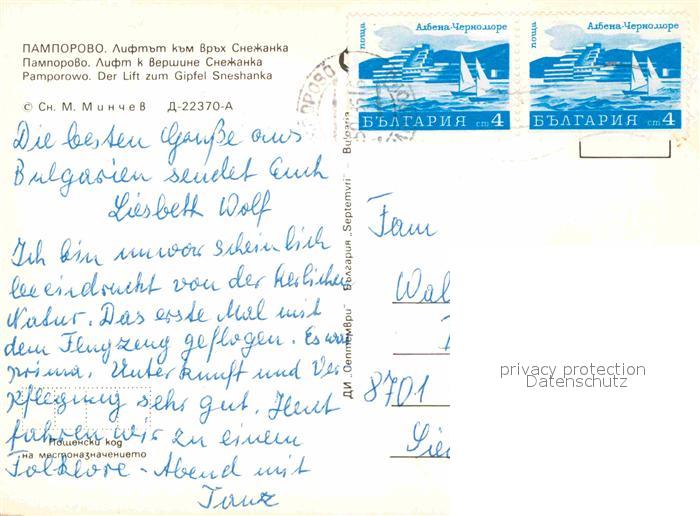 ПАМПОРОВО. Лифтът към връх Снежанка
Пампорово. Лифт к вершине Снежанка
Pamporowo. Der Lift zum Gipfel Sneshanka
© Сн. М. Минчев Д-22370-А
Die besten Grüße aus
Bulgarien sendet Euch
Liesbeth Wolf
Ich bin unwarscheinlich
beeindruckt von der herlichen
Natur. Das erste Mal mit
dem Flugzeug geflogen. Es war
prima. Unterkunft und Ver
pflegung sehr gut. Heut
fahren wir zu einem
Folklore-Abend mit
Tanz
Пощенски код
на местоназначението
ДИ „Септември" България „Septemvri" - Bulgaria
поща
Албена-Черноморе
БЪЛГАРИЯ ст 4
поща
Албена-Черноморе
БЪЛГАРИЯ ст 4
Fam
Wal
8701
privacy protection
Datenschutz